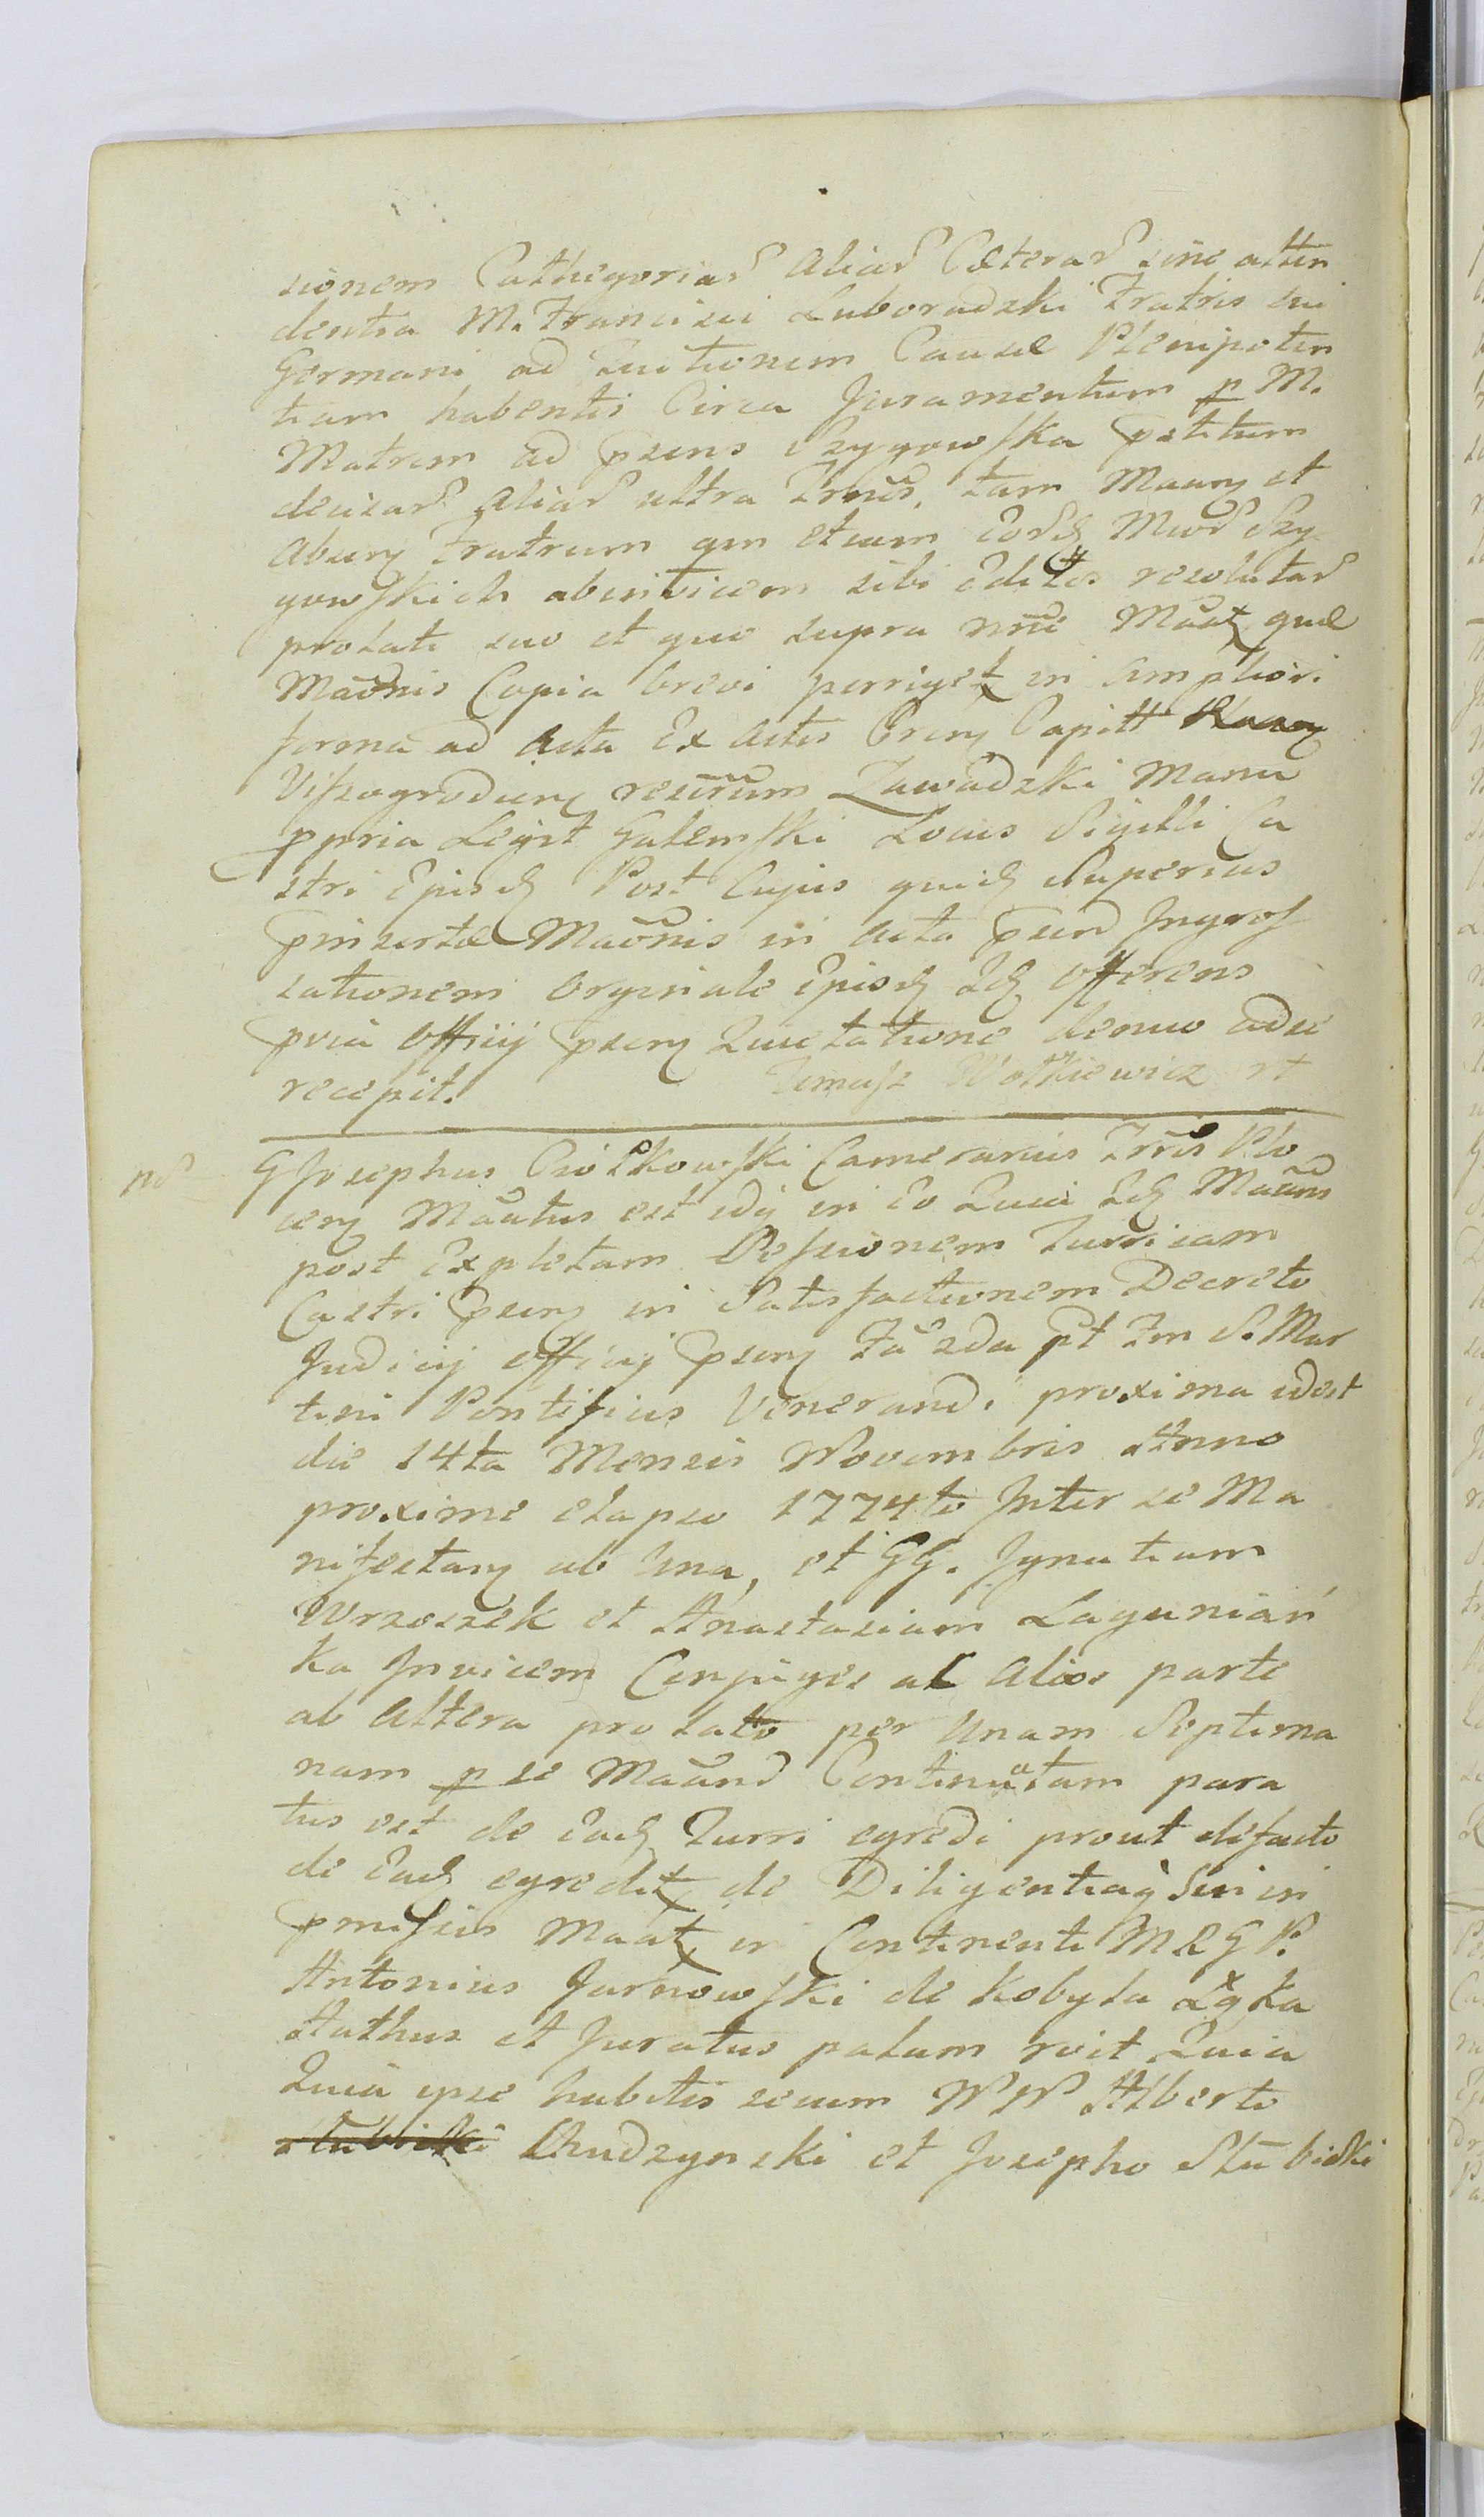 sionem Cathegorias alias Cæteras sine atten
dentia M. Francisci Luboradzki Fratris sui
Germani ad Luitionem Causæ Plenipoten
tiam habentis Circa Juramentum p M.
Matrem ad psens Szygowska petitum
decisas alias ultra Frnis, tam Maary et
Abury Fratrum qm etiam Eosdq Mwos Szy
gowskich abinvicem sibi Editis resolutas
prolati suo et quo supra nnè Maat, quæ
Maõnis Copia brevi porriget in Ampliori
forma ad Acta Ex Actis Crery Capitt
Viszogrodieny resũrũm Zawadzki Manu
ppria Legit Galemski Locus Sigilli Ca
stri Episdq Post Cujus quidq Superius
pinsertæ Maõnis in Acta psend Ingros
sationem Orginale Episdq Idq Offerens
pvia Officij pseny Quietatione denuo ad se
recepit. Tomasz Wołkiewicz rt
G Josephus Ciołkowski Camerarius Trris Plo
ceny Maatus est idq in Eo Quia Idq Maãns
post Expletam Sessionem Turri iam
Castri pseny in Satisfactionem Decreto
Judicij Officij pseny Fã 2da pt Fm S. Mar
tini Pontificis Venerand. proxima idest
die 14ta Mensis Novembris Anno
proxime elapso 1774to Inter se Ma
nifestany ab Una, et GG. Ignatium
Wrzoszek et Anastasiam Laguniań
ka Invicem Conjuges al Alios parte
ab Altera pro lato per Unam Septima
nam p se Maãnd Continuatam para
tus est de Eadq Turri egredi prout defacto
de Eadq egredit, de Diligentiaq Sui in
pmissis Maat, in Continenti MRGP.
Antonius Jarnowski de Kobyla Łąka
Stathus et Juratus palam rcit Quia
Quia ipse habitis secum NN Alberto
Chudzynski et Josepho Słubicki